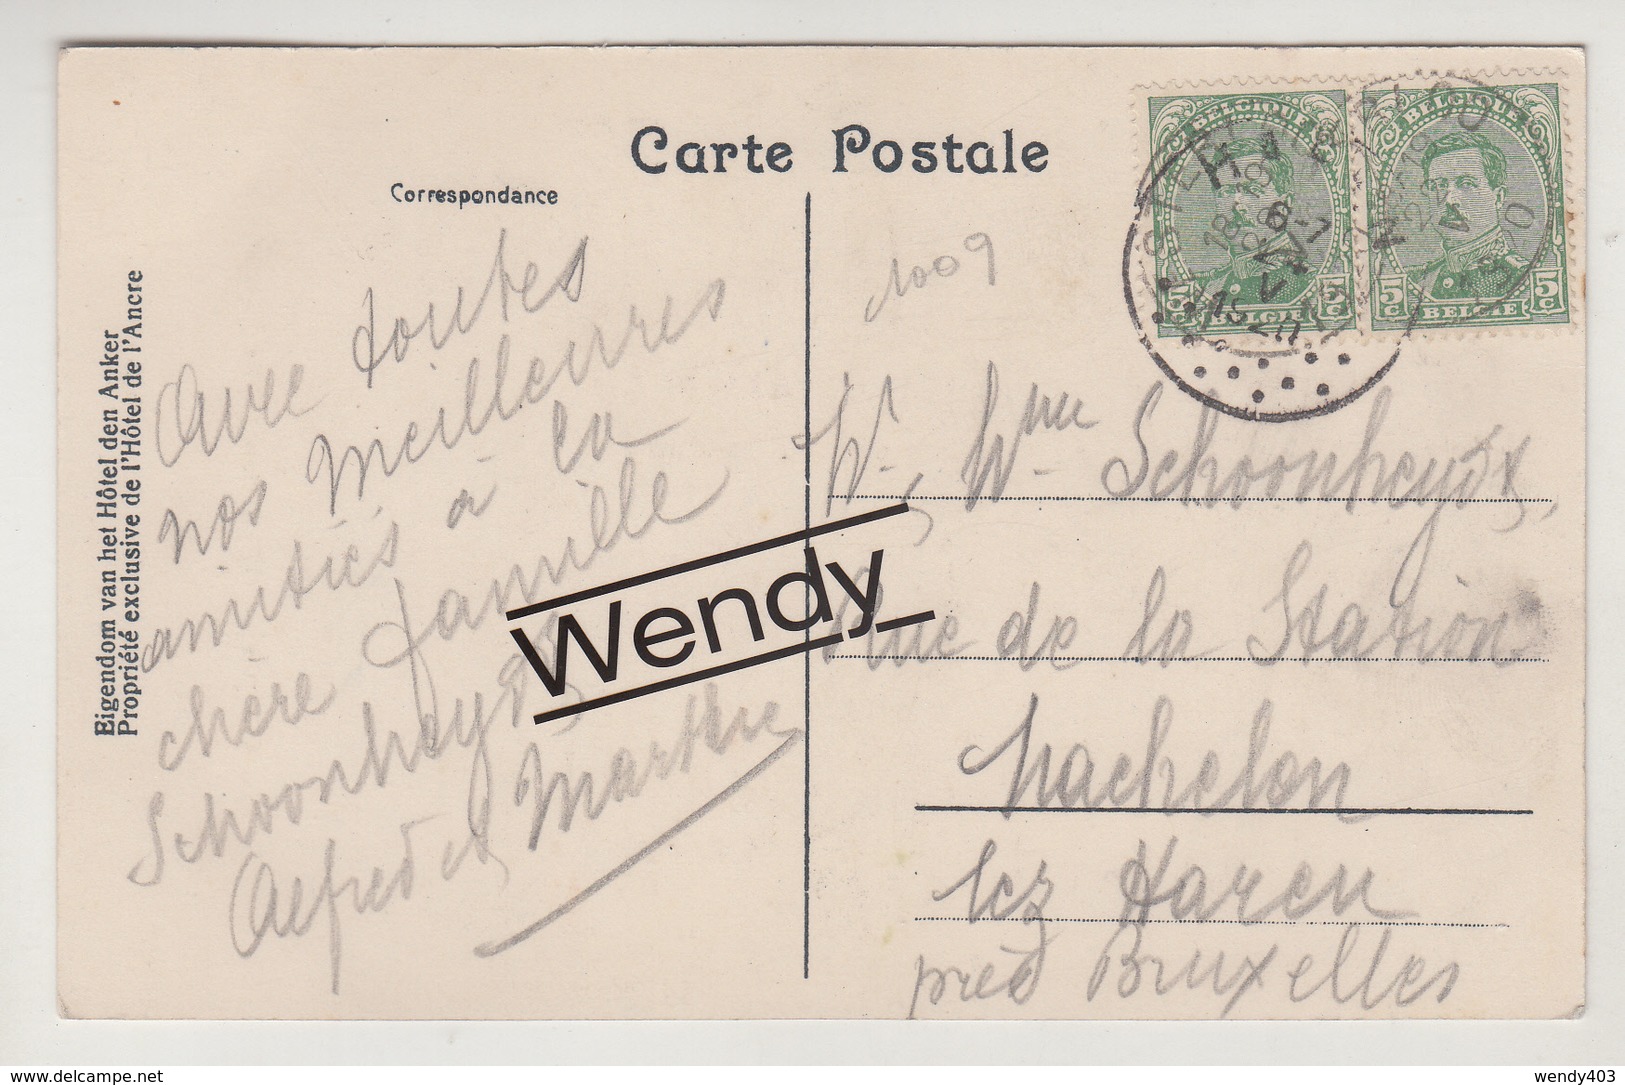 Carte Postale
Correspondance
Eigendom van het Hôtel den Anker
Propriété exclusive de l'Hôtel de l'Ancre
Avec toutes
nos meilleures
amitiés à la
chère famille
Schoonheydt
Alfred et Marthe
1009
BELGIQUE
5c 5c
BELGIË
BELGIQUE
5c 5c
BELGIË
6-7
V
Wm Schoonheydt
Rue de la Station
Machelen
lez Haren
près Bruxelles
Wendy
delcampe.net
wendy403